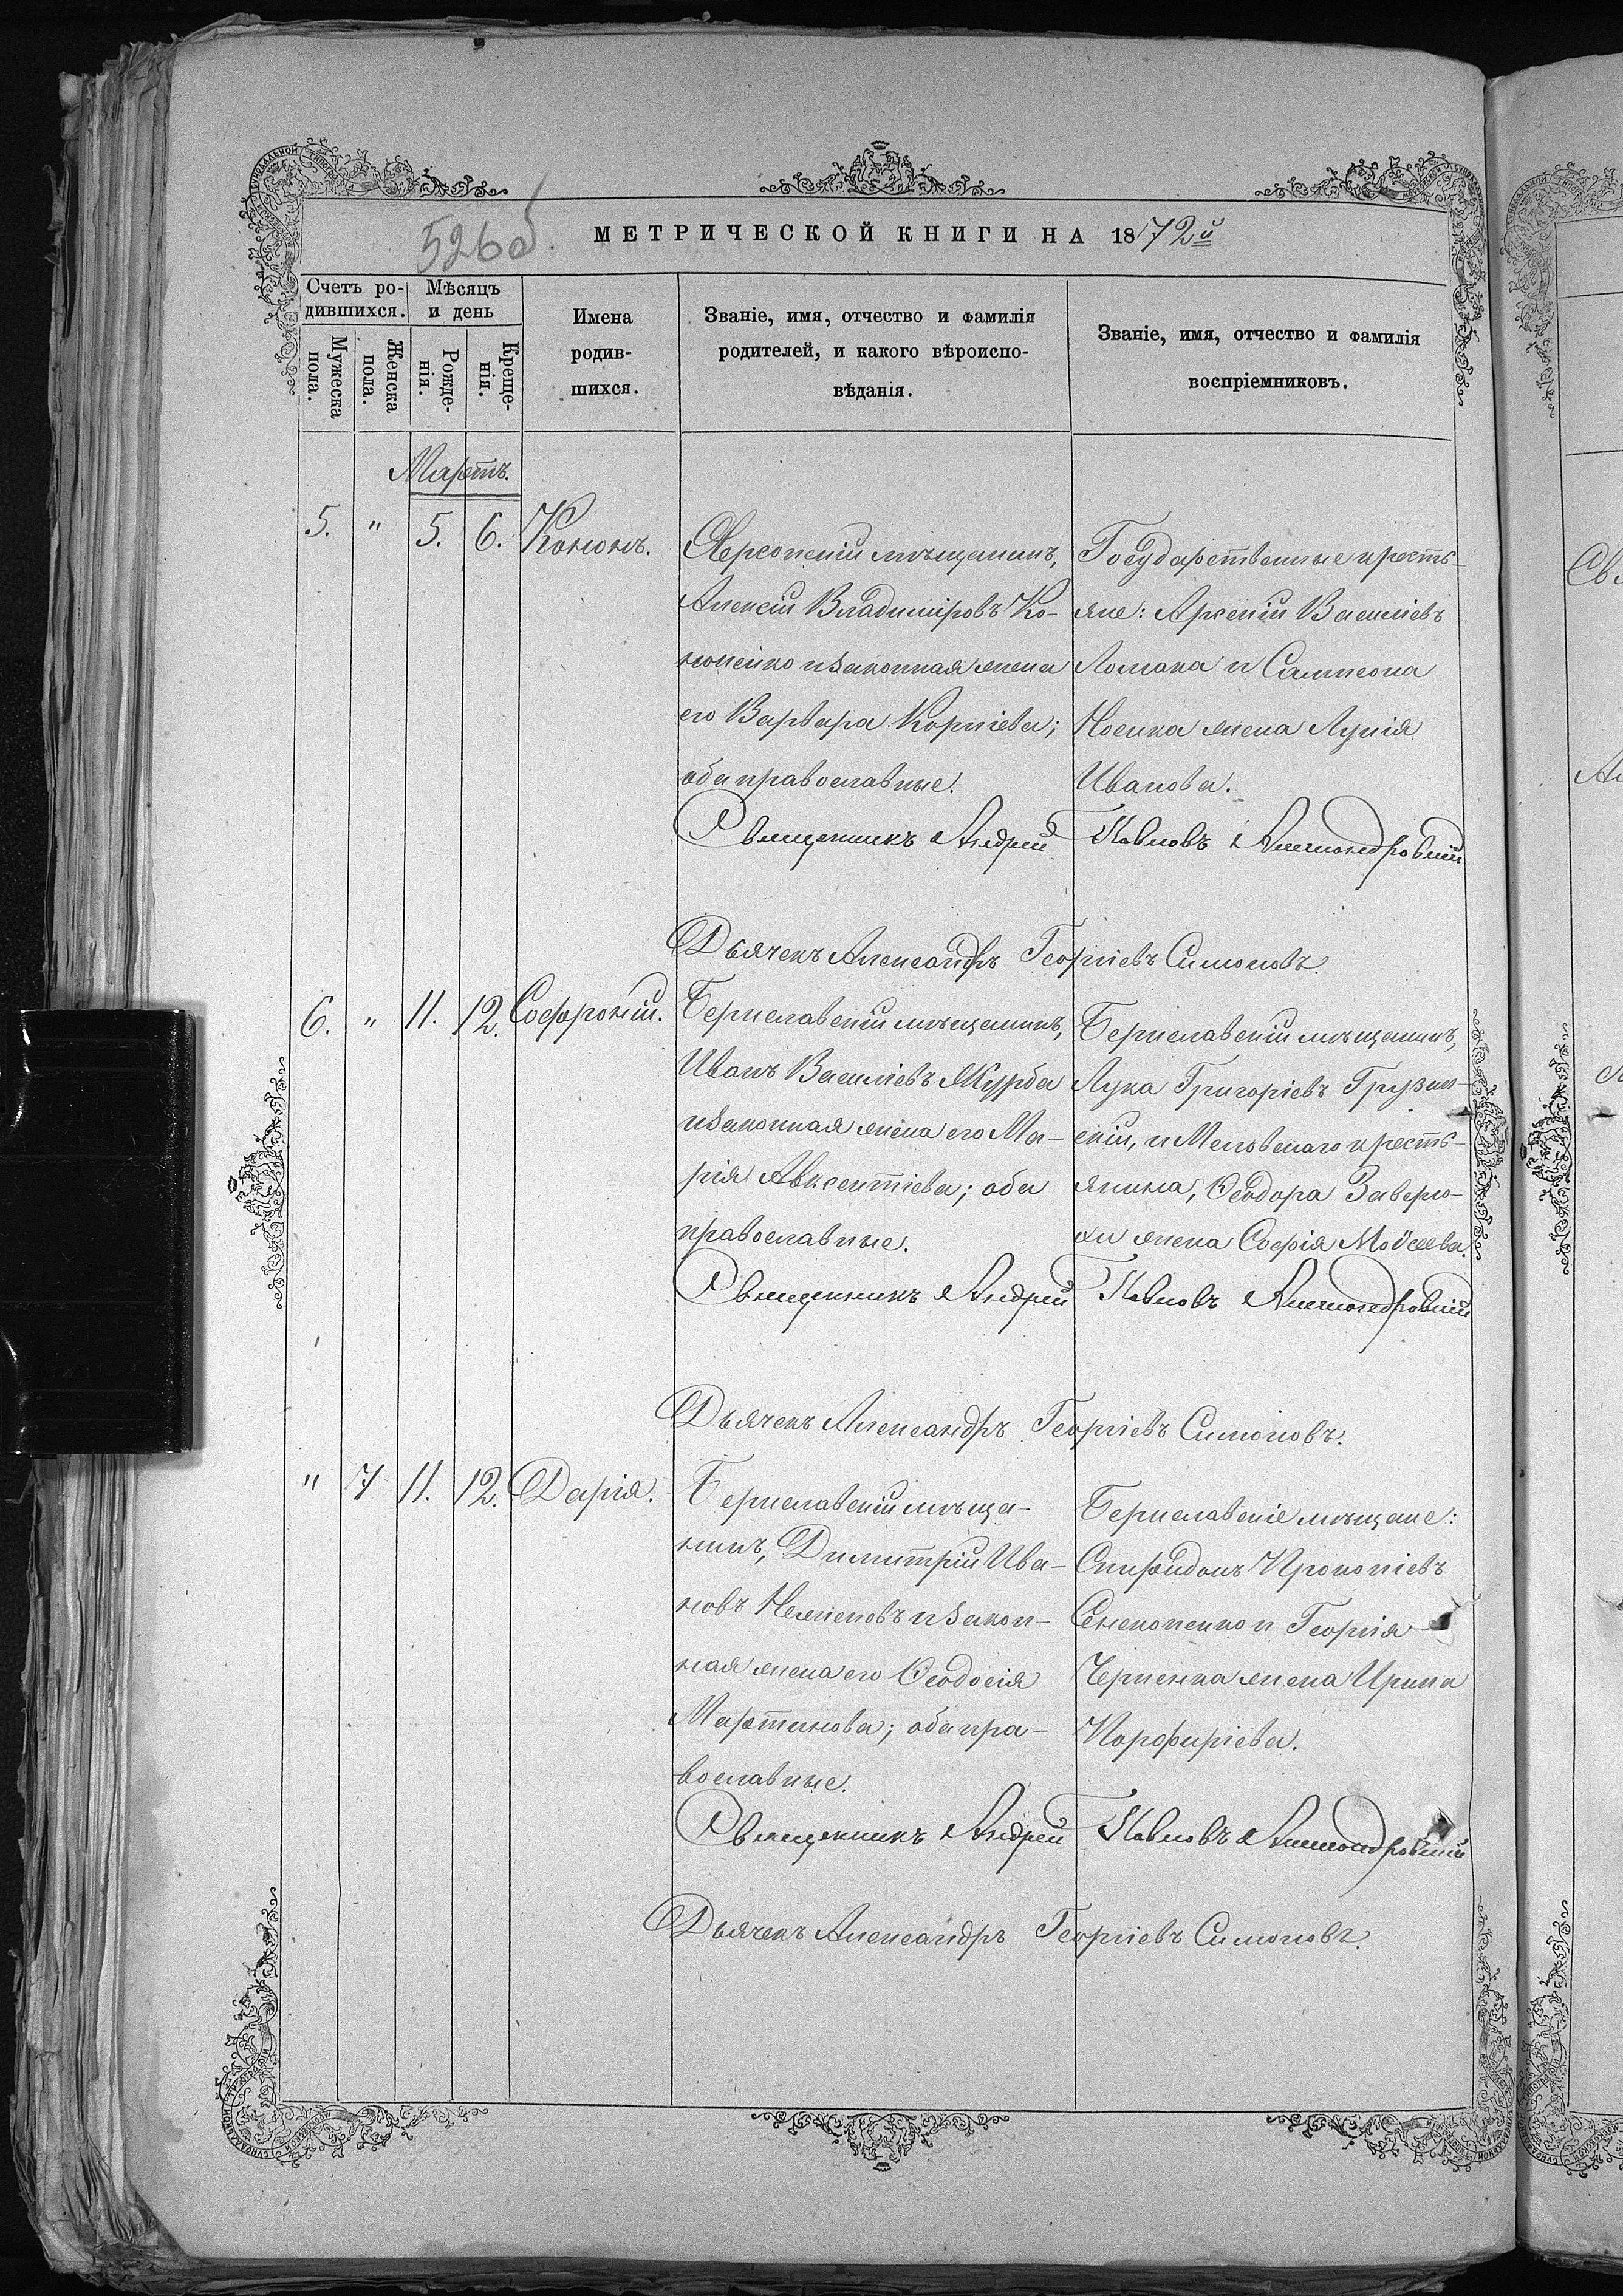 526об.
МЕТРИЧЕСКОЙ КНИГИ НА 1872й
Счетъ ро-
дившихся.
Мѣсяцъ
и день
Мужеска
пола.
Женска
пола.
Рожде-
нія.
Креще-
нія.
Имена
родив-
шихся.
Званіе, имя, отчество и фамилія
родителей, и какого вѣроиспо-
вѣданія.
Званіе, имя, отчество и фамилія
воспріемниковъ.
Мартъ.
5. " 5. 6. Кононъ.
Херсонскій мѣщанинъ,
Алексій Владиміровъ Ко-
ноненко и законная жена
его Варвара Корніева;
оба православные.
Государственные кресть-
яне: Арсеній Василіевъ
Ломака и Сампсона
Носика жена Лукія
Иванова.
Священникъ Андрей Павловъ Александровскій
Дьячекъ Александръ Георгіевъ Симоновъ.
6. " 11. 12. Софроній.
Бериславскій мѣщанинъ,
Иванъ Василіевъ Журба
и законная жена его Ма-
рія Авксентіева; оба
православные.
Бериславскій мѣщанинъ,
Лука Григоріевъ Грузин-
скій, и Меловскаго кресть-
янина, Ѳеодора Заверю-
хи жена Софія Моѵсеева.
Священникъ Андрей Павловъ Александровскій
Дьячекъ Александръ Георгіевъ Симоновъ.
" 7 11. 12. Дарія.
Бериславскій мѣща-
нинъ, Димитрій Ива-
новъ и закон-
ная жена его Ѳеодосія
Мартинова; оба пра-
вославные.
Бериславскіе мѣщане:
Спиридонъ Прокопіевъ
Сенекопенко и Георгія
Черненка жена Ирина
Порфиріева.
Священникъ Андрей Павловъ Александровскій
Дьячекъ Александръ Георгіевъ Симоновъ.